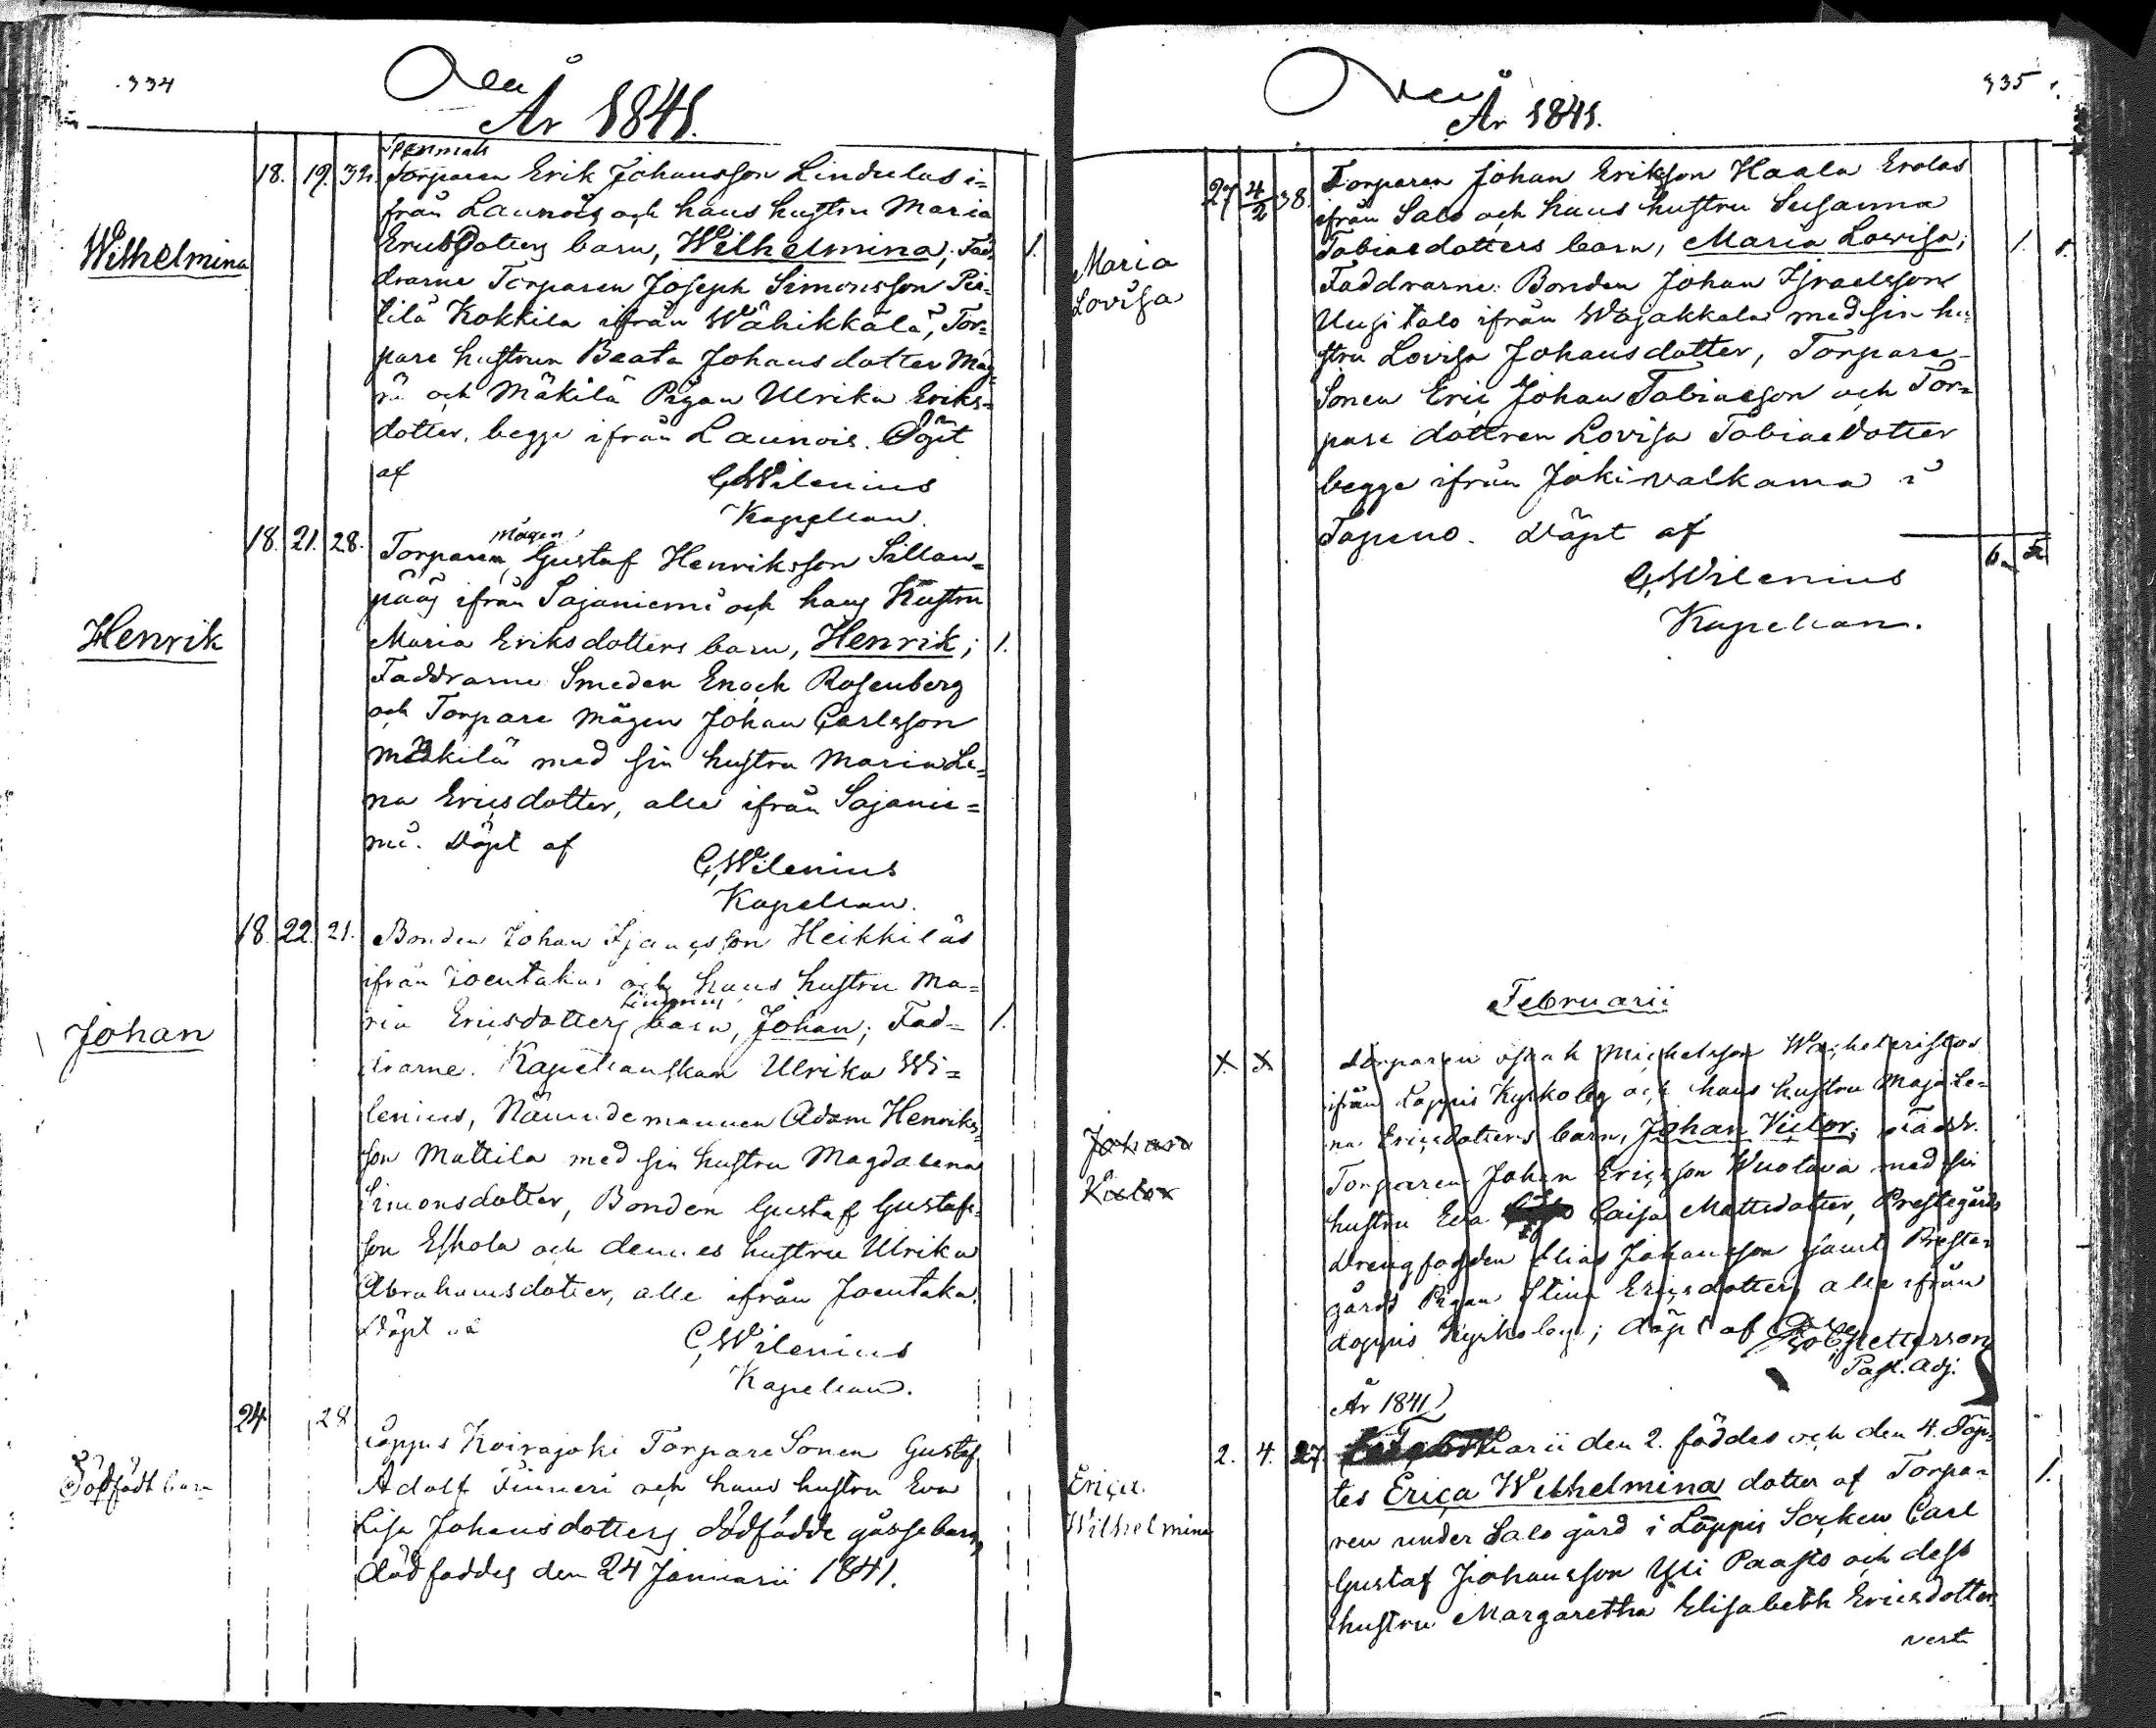 334
År 1841.
18. 19. 32. Torparen Erik Johansson Lindulas i=
från Launois och hans hustru Maria
Wilhelmina
Ericsdotters barn, Wilhelmina; Fad= 1.
drarne Torparen Joseph Simonsson
tilä Kokkila ifrån Wähikkälä, Tor=
pare hustrun Beata Johansdotter Mäy=
rä och Mäkilä Pigan Ulrika Eriks=
dotter, begge ifrån Launois. Döpt
af C, Wilenius
Kapellan.
18. 21. 28. Torparen mågen Gustaf Henriksson Sillan=
pääs ifrån Sajaniemi och hans Hustru
Henrik
Maria Eriksdotters barn, Henrik; 1.
Faddrarne Smeden Enoch Rosenberg
och Torpare mågen Johan Carlsson
Mäkilä med sin hustru Maria Le=
na Ericsdotter, alle ifrån Sajanie=
mi. Döpt af
C, Wilenius
Kapellan.
18. 22. 21. Bonden Johan Heikkiläs
ifrån Joentaka och hans hustru Ma=
Johan
ria Ericsdotters barn, Johan; Fad= 1.
drarne. Kapellanskan Ulrika Wi=
lenius, Nämndemannen Adam Henriks=
son Mattila med sin hustru Magdalena
Simonsdotter, Bonden Gustaf Gustafs=
son Eskola och dennes hustru Ulrika
Abrahamsdotter, alle ifrån Joentaka.
Döpt af
C, Wilenius
Kapellan.
24. 28
Dödfödt barn
Loppis Koirajoki Torpare Sonen Gustaf
Adolf och hans hustru Eva
Lisa Johansdotters dödfödde gossebarn,
dödföddes den 24 Januarii 1841.
335
År 1841.
27 4/2 38. Torparen Johan Eriksson Haala Erolas
ifrån Salo och hans hustru Susanna
Maria
Lovisa
Tobiaedotters barn, Maria Lovisa; 1.
Faddrarne: Bonden Johan Israelsson
Uusitalo ifrån Wojakkala med sin hu=
stru Lovisa Johansdotter, Torpare
Sonen Eric Johan Tobiaeson och Tor=
pare dottren Lovisa Tobiaedotter
begge ifrån Jokivalkama i
Topeno. Döpt af
6. 5
C, Wilenius
Kapellan.
Februarii
X. X Torparen Michelsson
ifrån Loppis Kyrkoby och hans hustru Maja Le=
Johan
Victor
na Ericsdotters barn, Johan Victor; Faddr.
Torparen Johan Ericsson Wuotava med sin
hustru Eva Caisa Mattsdotter, Prestegårds
Drengfogden Elias Johansson samt Preste=
gårds Pigan Stina Ericsdotter, alla ifrån
Loppis Kyrkoby; döpt af Petterson
Past. Adj.
År 1841
2. 4. 27. den 2. föddes och den 4. döp=
Erica
Wilhelmina
tes Erica Wilhelmina dotter af Torpa= 1.
ren under Salo gård i Loppis Socken Carl
Gustaf Johansson Yli Paaso och dess
hustru Margaretha Elisabeth Ericsdotter
vert